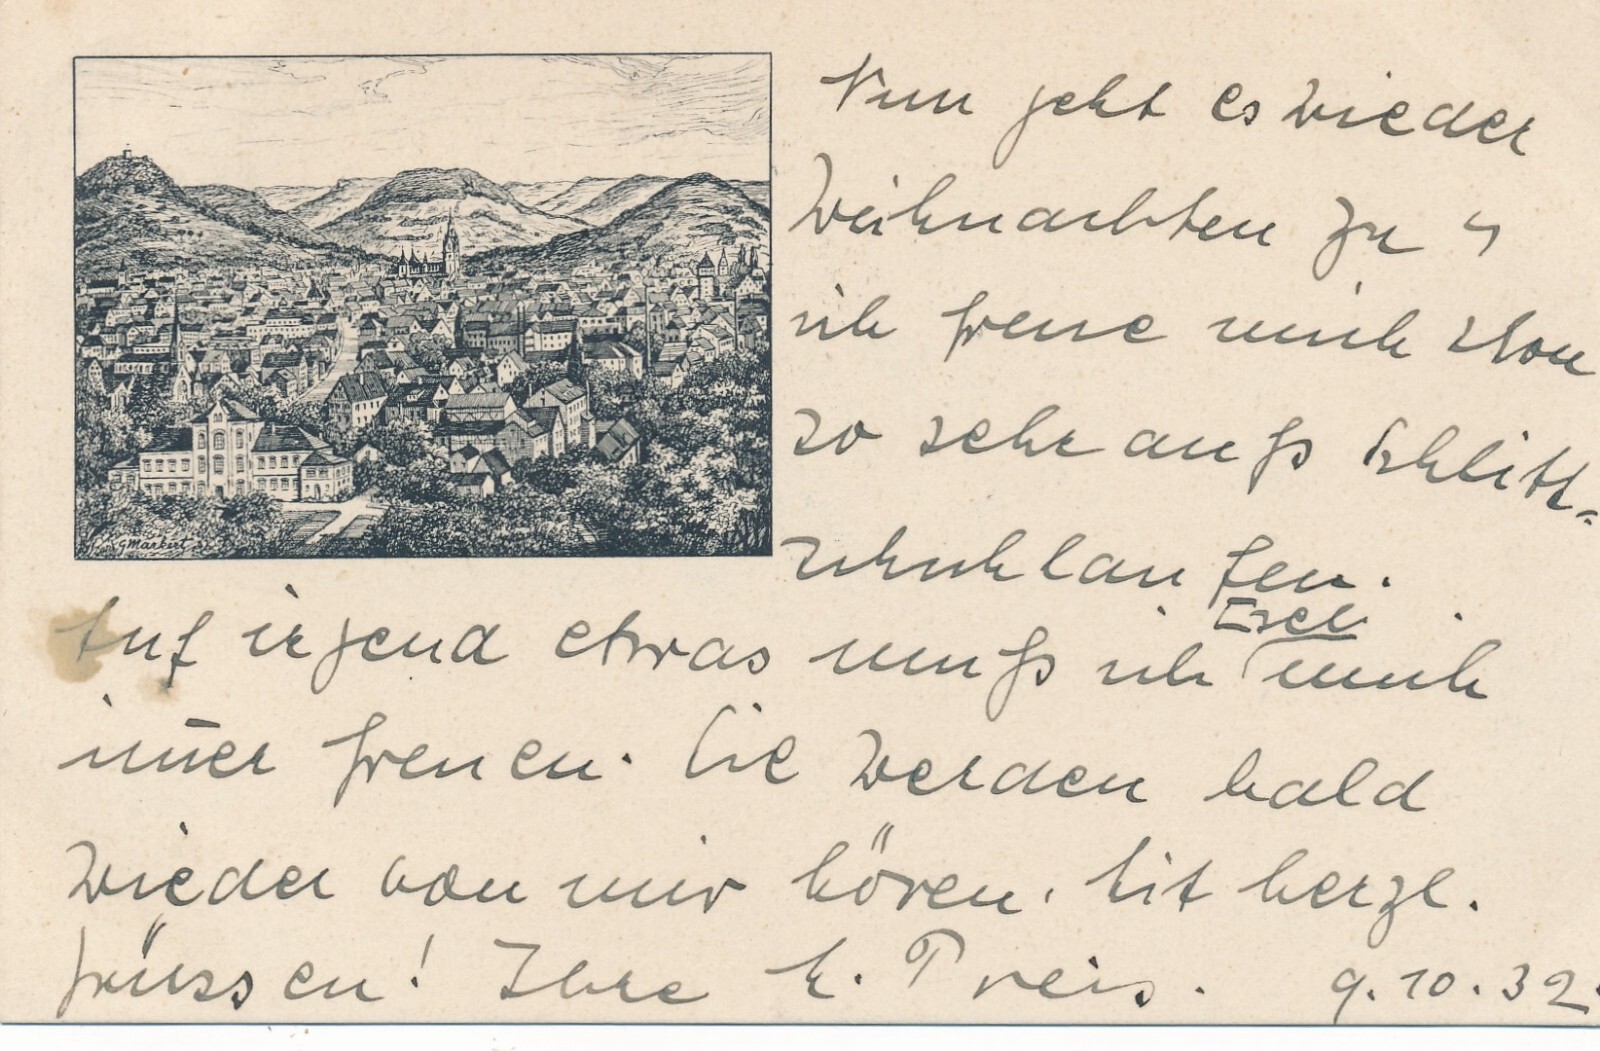 Nun geht es wieder
Weihnachten zu u
ich freue mich schon
so sehr aufs Schlitt-
schuhlaufen.
Auf irgend etwas muß ich Esel mich
im̅er freuen. Sie werden bald
wieder von mir hören. Mit herzl.
Grüssen! Ihre K. Preis. 9.10.32.
GMarkert